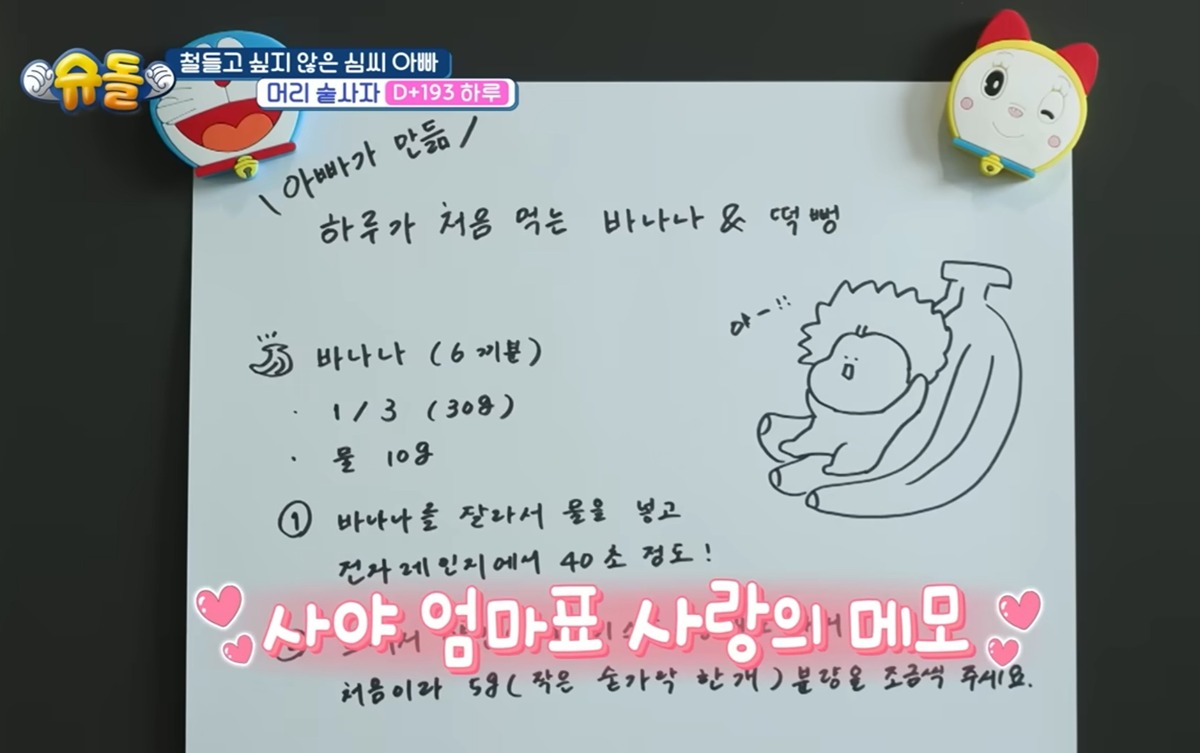 슈돌
철들고 싶지 않은 심씨 아빠
머리 숱사자 D+193 하루
\ 아빠가 만듦 /
하루가 처음 먹는 바나나 & 떡뻥
아-!!
바나나 (6끼분)
· 1/3 (30g)
· 물 10g
① 바나나를 잘라서 물을 넣고
전자레인지에서 40초 정도!
사야 엄마표 사랑의 메모
처음이라 5g(작은 숟가락 한 개) 분량을 조금씩 주세요.